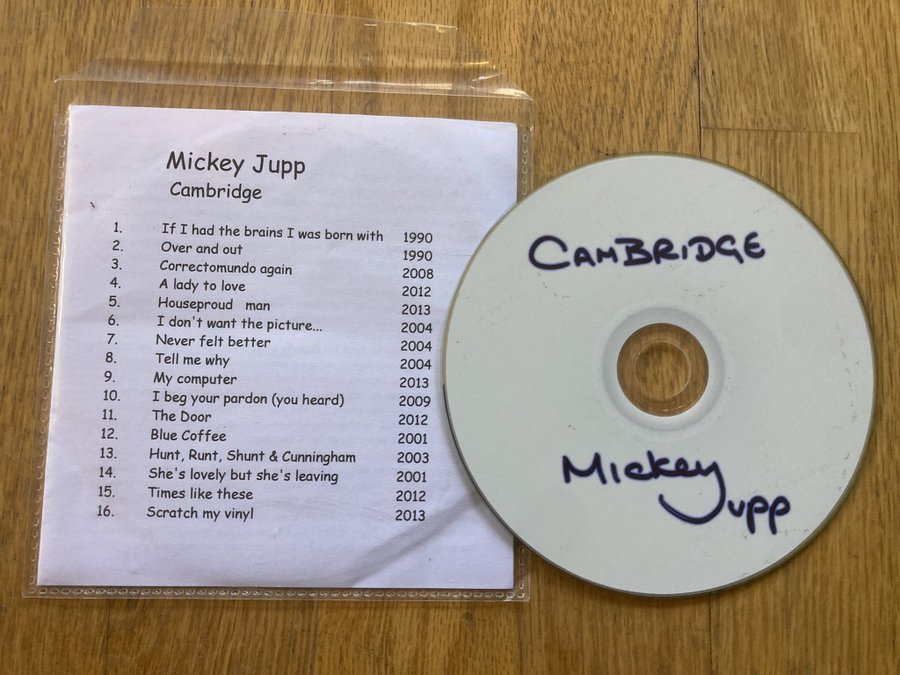 Mickey Jupp
Cambridge
1. If I had the brains I was born with 1990
2. Over and out 1990
3. Correctomundo again 2008
4. A lady to love 2012
5. Houseproud man 2013
6. I don't want the picture... 2004
7. Never felt better 2004
8. Tell me why 2004
9. My computer 2013
10. I beg your pardon (you heard) 2009
11. The Door 2012
12. Blue Coffee 2001
13. Hunt, Runt, Shunt & Cunningham 2003
14. She's lovely but she's leaving 2001
15. Times like these 2012
16. Scratch my vinyl 2013
CAMBRIDGE
Mickey
Jupp